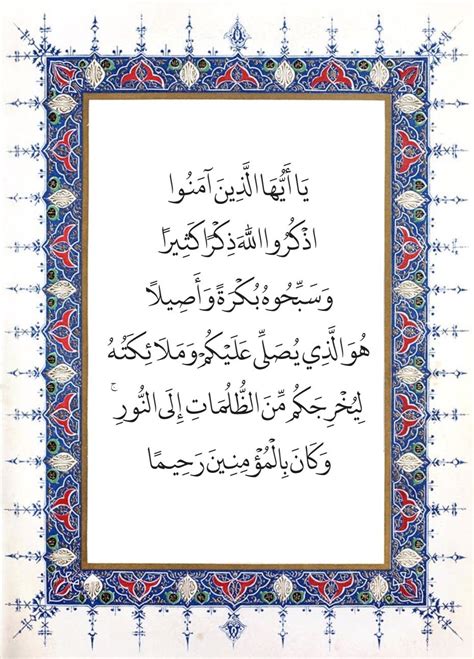 يَا أَيُّهَا الَّذِينَ آمَنُوا
اذْكُرُوا اللَّهَ ذِكْرًا كَثِيرًا
وَسَبِّحُوهُ بُكْرَةً وَأَصِيلًا
هُوَ الَّذِي يُصَلِّي عَلَيْكُمْ وَمَلَائِكَتُهُ
لِيُخْرِجَكُم مِّنَ الظُّلُمَاتِ إِلَى النُّورِ ۚ
وَكَانَ بِالْمُؤْمِنِينَ رَحِيمًا